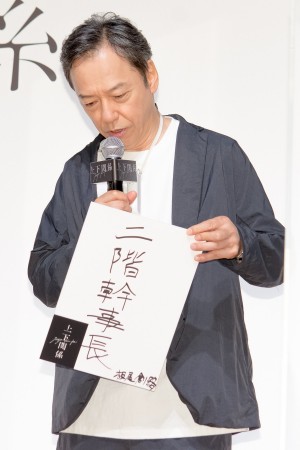 上下関係
二階幹事長
板尾創路
上下関係